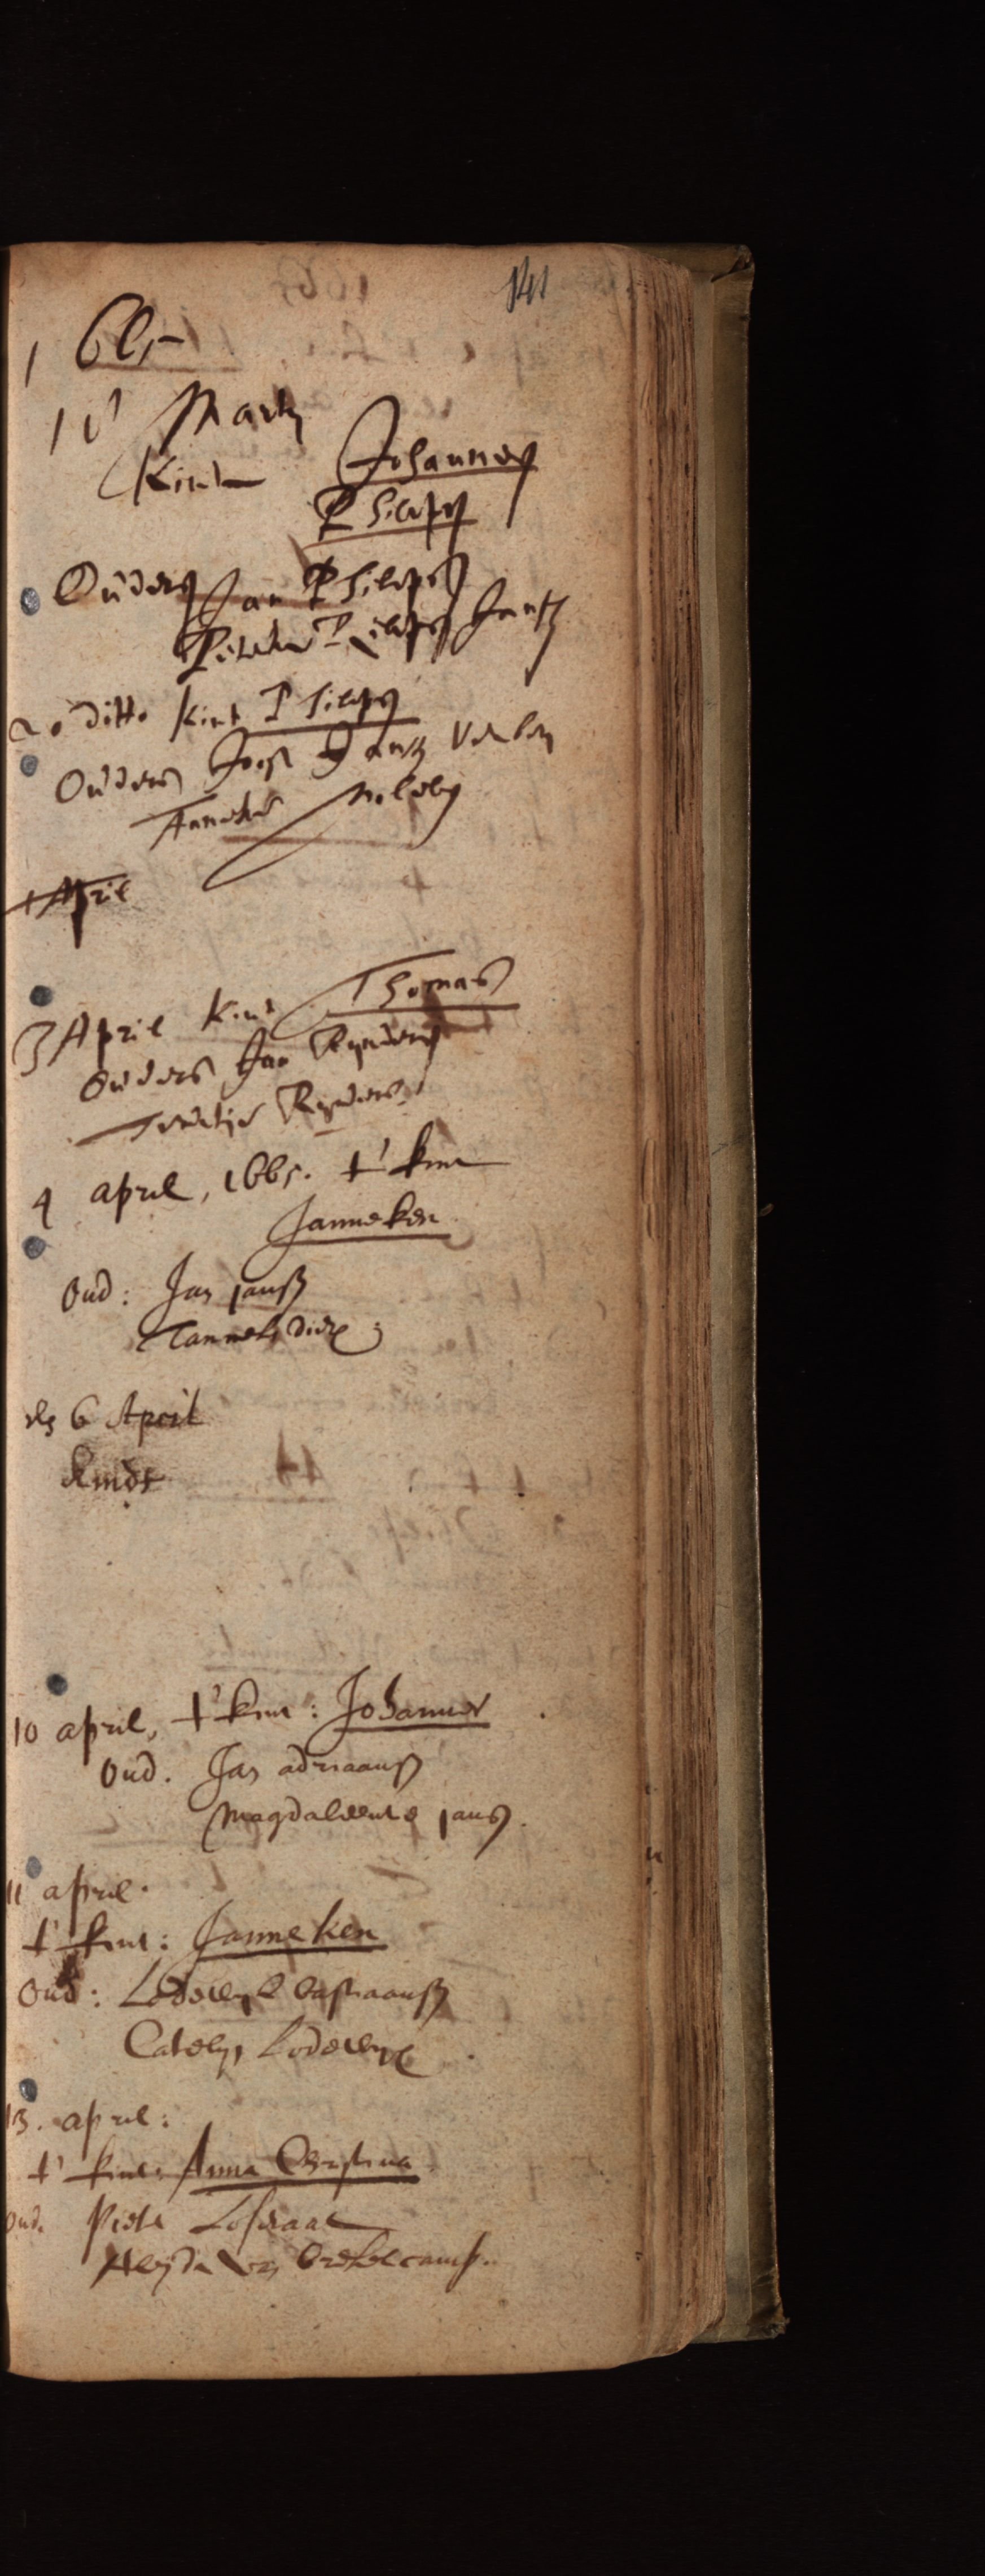 141
1665
15 Martz
Kint Johannes
Philips
Ouders Jan Philips
Philips Jantz
20 ditto Kint Philips
Ouders Joost Jantz
Anneke
1 April
3 April Kint Thomas
Ouders Jan Reynders
Reynders
4 april, 1665. t' kint
Janneken
Oud: Jan janß
Tanneke dircx
den 6 April
Kindt
10 april, t' kint: Johannes
Oud. Jan adriaanß
Magdaleene jans.
11 april.
t' kint: Janneken
Oud: Lodewyck bastiaanß
Catelyn Lodewycx
13. april:
t' kint: Anna Christina
Oud. Pieter